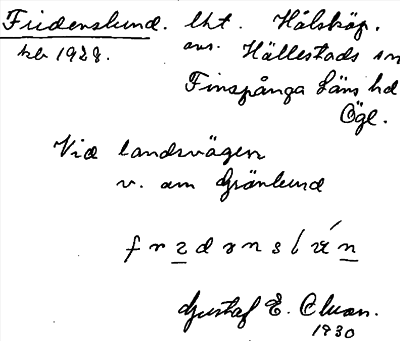 Fridenslund. lht. Hålsköp.
kb 1928. ans. Hällestads sn
Finspånga Läns hd
Ögl.
Vid landsvägen
v. om Grönlund
Gustaf E. Cluan.
1930